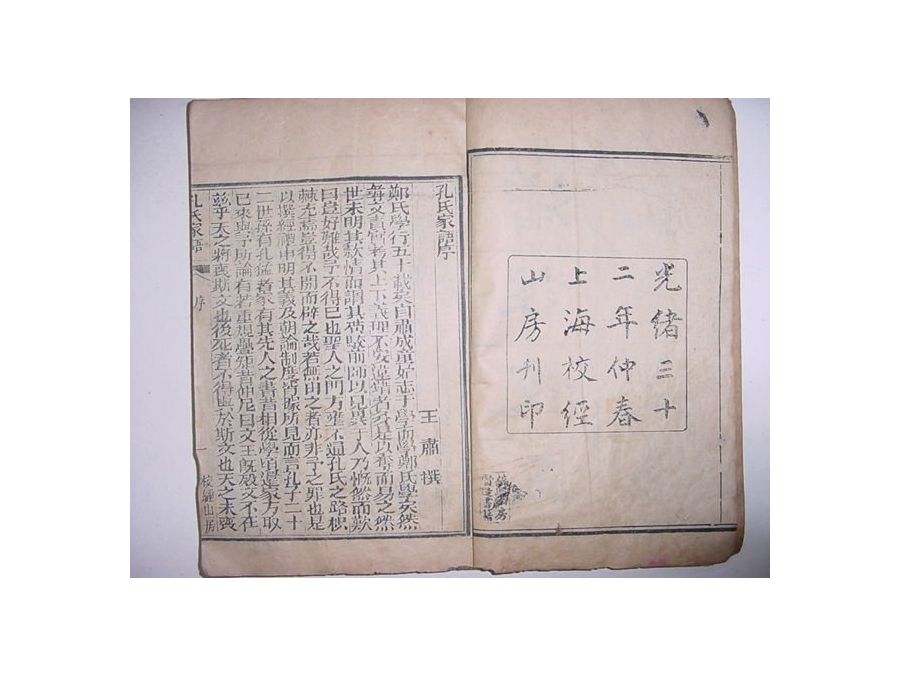 光緒三十
二年仲春
上海校經
山房刊印
孔氏家語序
王肅撰
鄭氏學行五十載矣自肅成童始志于學而學鄭氏學矣然
尋文責實考其上下義理不安違錯者多是以奪而易之然
世未明其欵情而謂其苟駁前師以見異于人乃慨然而歎
曰豈好難哉予不得已也聖人之門方壅不通孔氏之路枳
棘充焉豈得不開而辟之哉若無由之者亦非予之罪也是
以撰經禮申明其義及朝論制度皆據所見而言孔子二十
二世孫有孔猛者家有其先人之書昔相從學頃還家方取
已來與予所論有若重規疊矩昔仲尼曰文王旣歿文不在
茲乎天之將喪斯文也後死者不得與於斯文也天之未喪
孔氏家語
序
一
校經山房